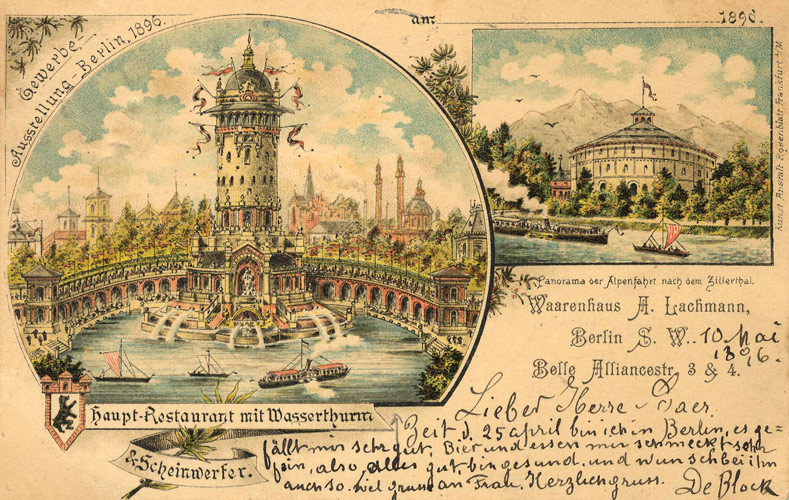 Gewerbe-
Ausstellung-Berlin, 1896.
am 1896.
Kunst Anstalt Rosenblatt Frankfurt a/M
Panorama der Alpenfahrt nach dem Zillerthal.
Waarenhaus A. Lachmann,
Berlin S. W.. 10 Mai
1896.
Belle Alliancestr. 3 & 4.
Haupt-Restaurant mit Wasserthurm
& Scheinwerfer.
Lieber Herre
Zeit d. 25 april bin ich in Berlin, es ge-
fällt mir sehr gut, Bier und essen mir schmeckt sehr
fein, also, alles gut, bin gesund. und wunsch bei ihn
auch so. viel gruss an Frau. Herzlich gruss. De Block